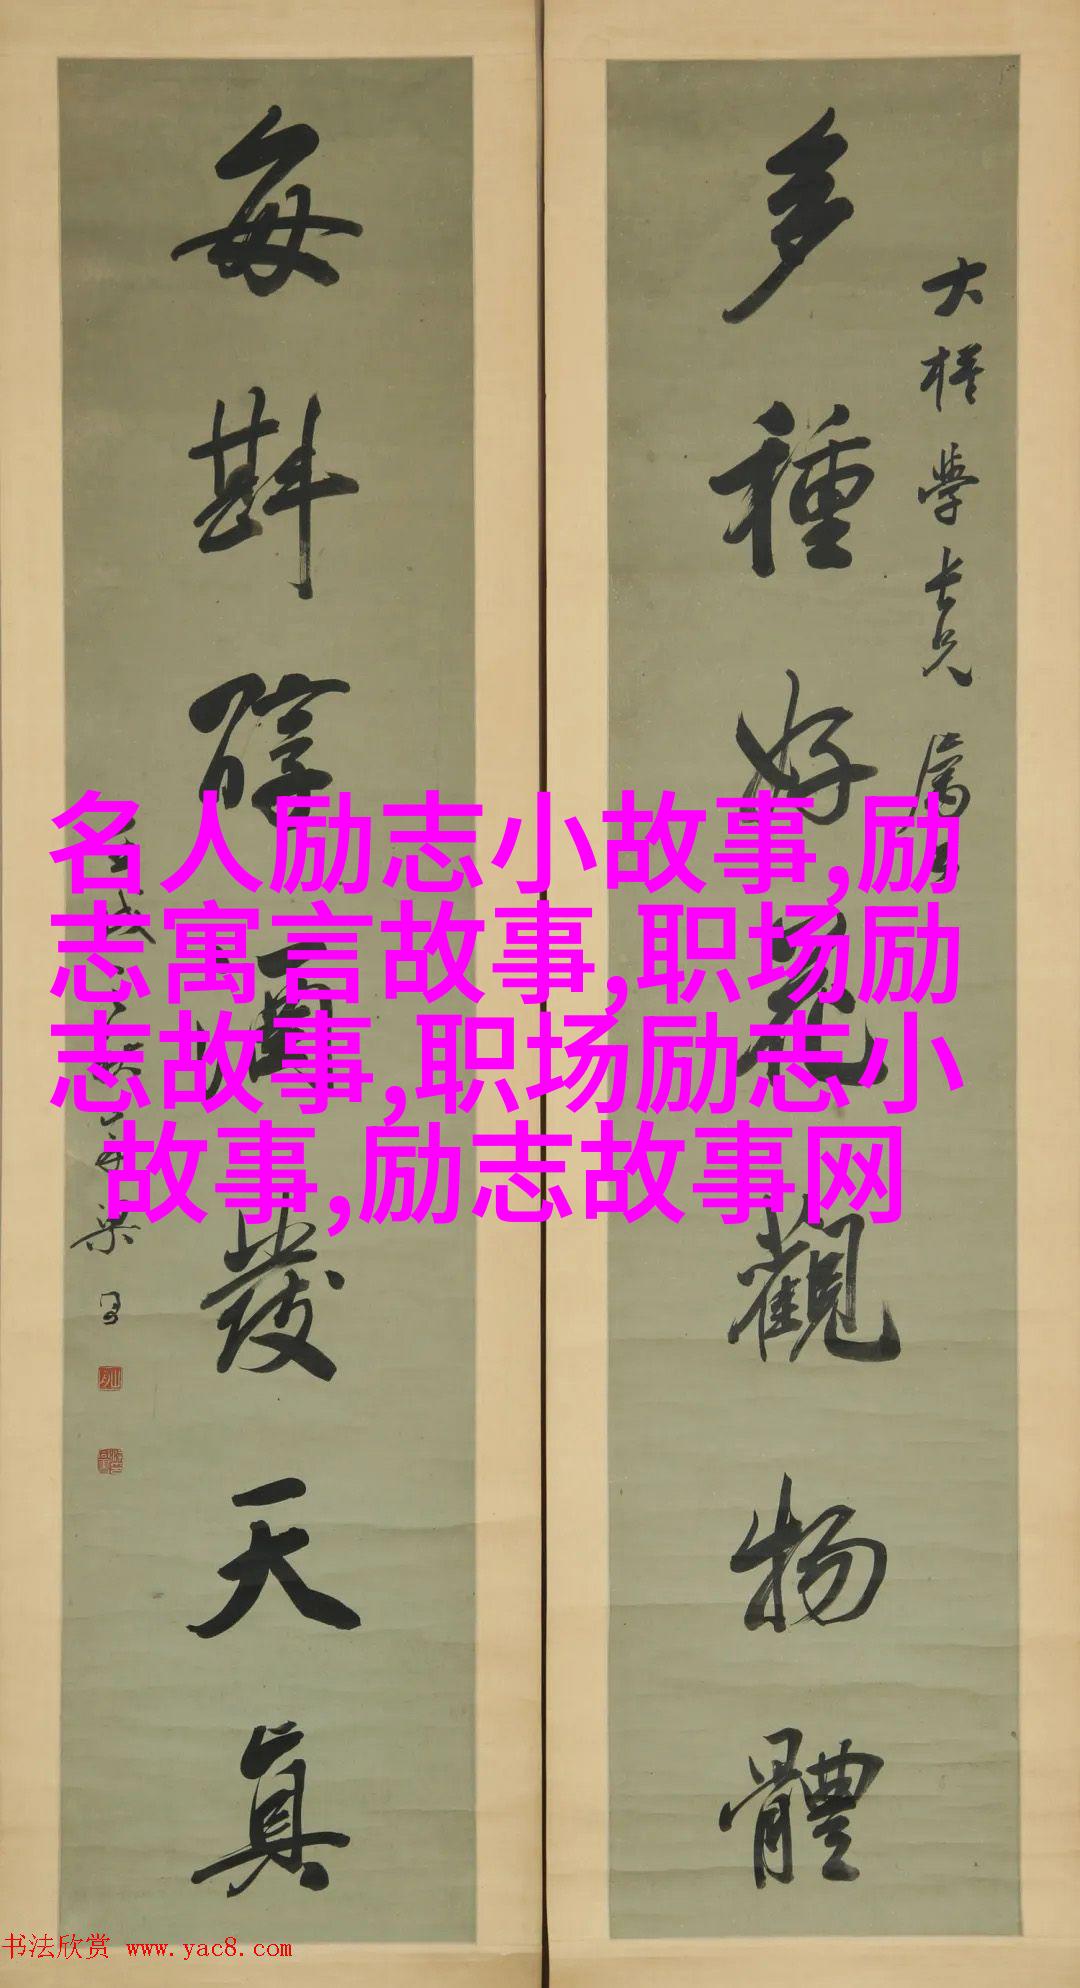 多種好花觀物體
大楷學士兄屬
每斟醇酒發天真
名人励志小故事,励
志寓言故事,职场励
志故事,职场励志小
故事,励志故事网
书法欣赏 www.yac8.com